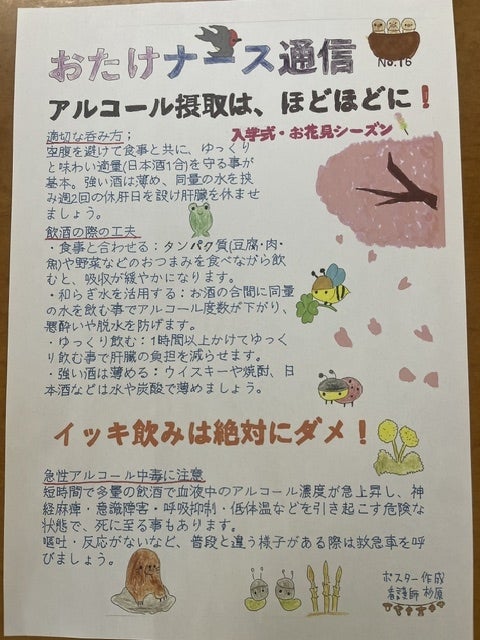 おたけナース通信
No.16
アルコール摂取は、ほどほどに！
入学式・お花見シーズン
適切な呑み方；
空腹を避けて食事と共に、ゆっくり
と味わい適量(日本酒1合)を守る事が
基本。強い酒は薄め、同量の水を挟
み週2回の休肝日を設け肝臓を休ませ
ましょう。
飲酒の際の工夫
・食事と合わせる：タンパク質(豆腐・肉・
魚)や野菜などのおつまみを食べながら飲
むと、吸収が緩やかになります。
・和らぎ水を活用する：お酒の合間に同量
の水を飲む事でアルコール度数が下がり、
悪酔いや脱水を防げます。
・ゆっくり飲む：1時間以上かけてゆっく
り飲む事で肝臓の負担を減らせます。
・強い酒は薄める：ウイスキーや焼酎、日
本酒などは水や炭酸で薄めましょう。
イッキ飲みは絶対にダメ！
急性アルコール中毒に注意
短時間で多量の飲酒で血液中のアルコール濃度が急上昇し、神
経麻痺・意識障害・呼吸抑制・低体温などを引き起こす危険な
状態で、死に至る事もあります。
嘔吐・反応がないなど、普段と違う様子がある際は救急車を呼
びましょう。
ポスター作成
看護師 杉原